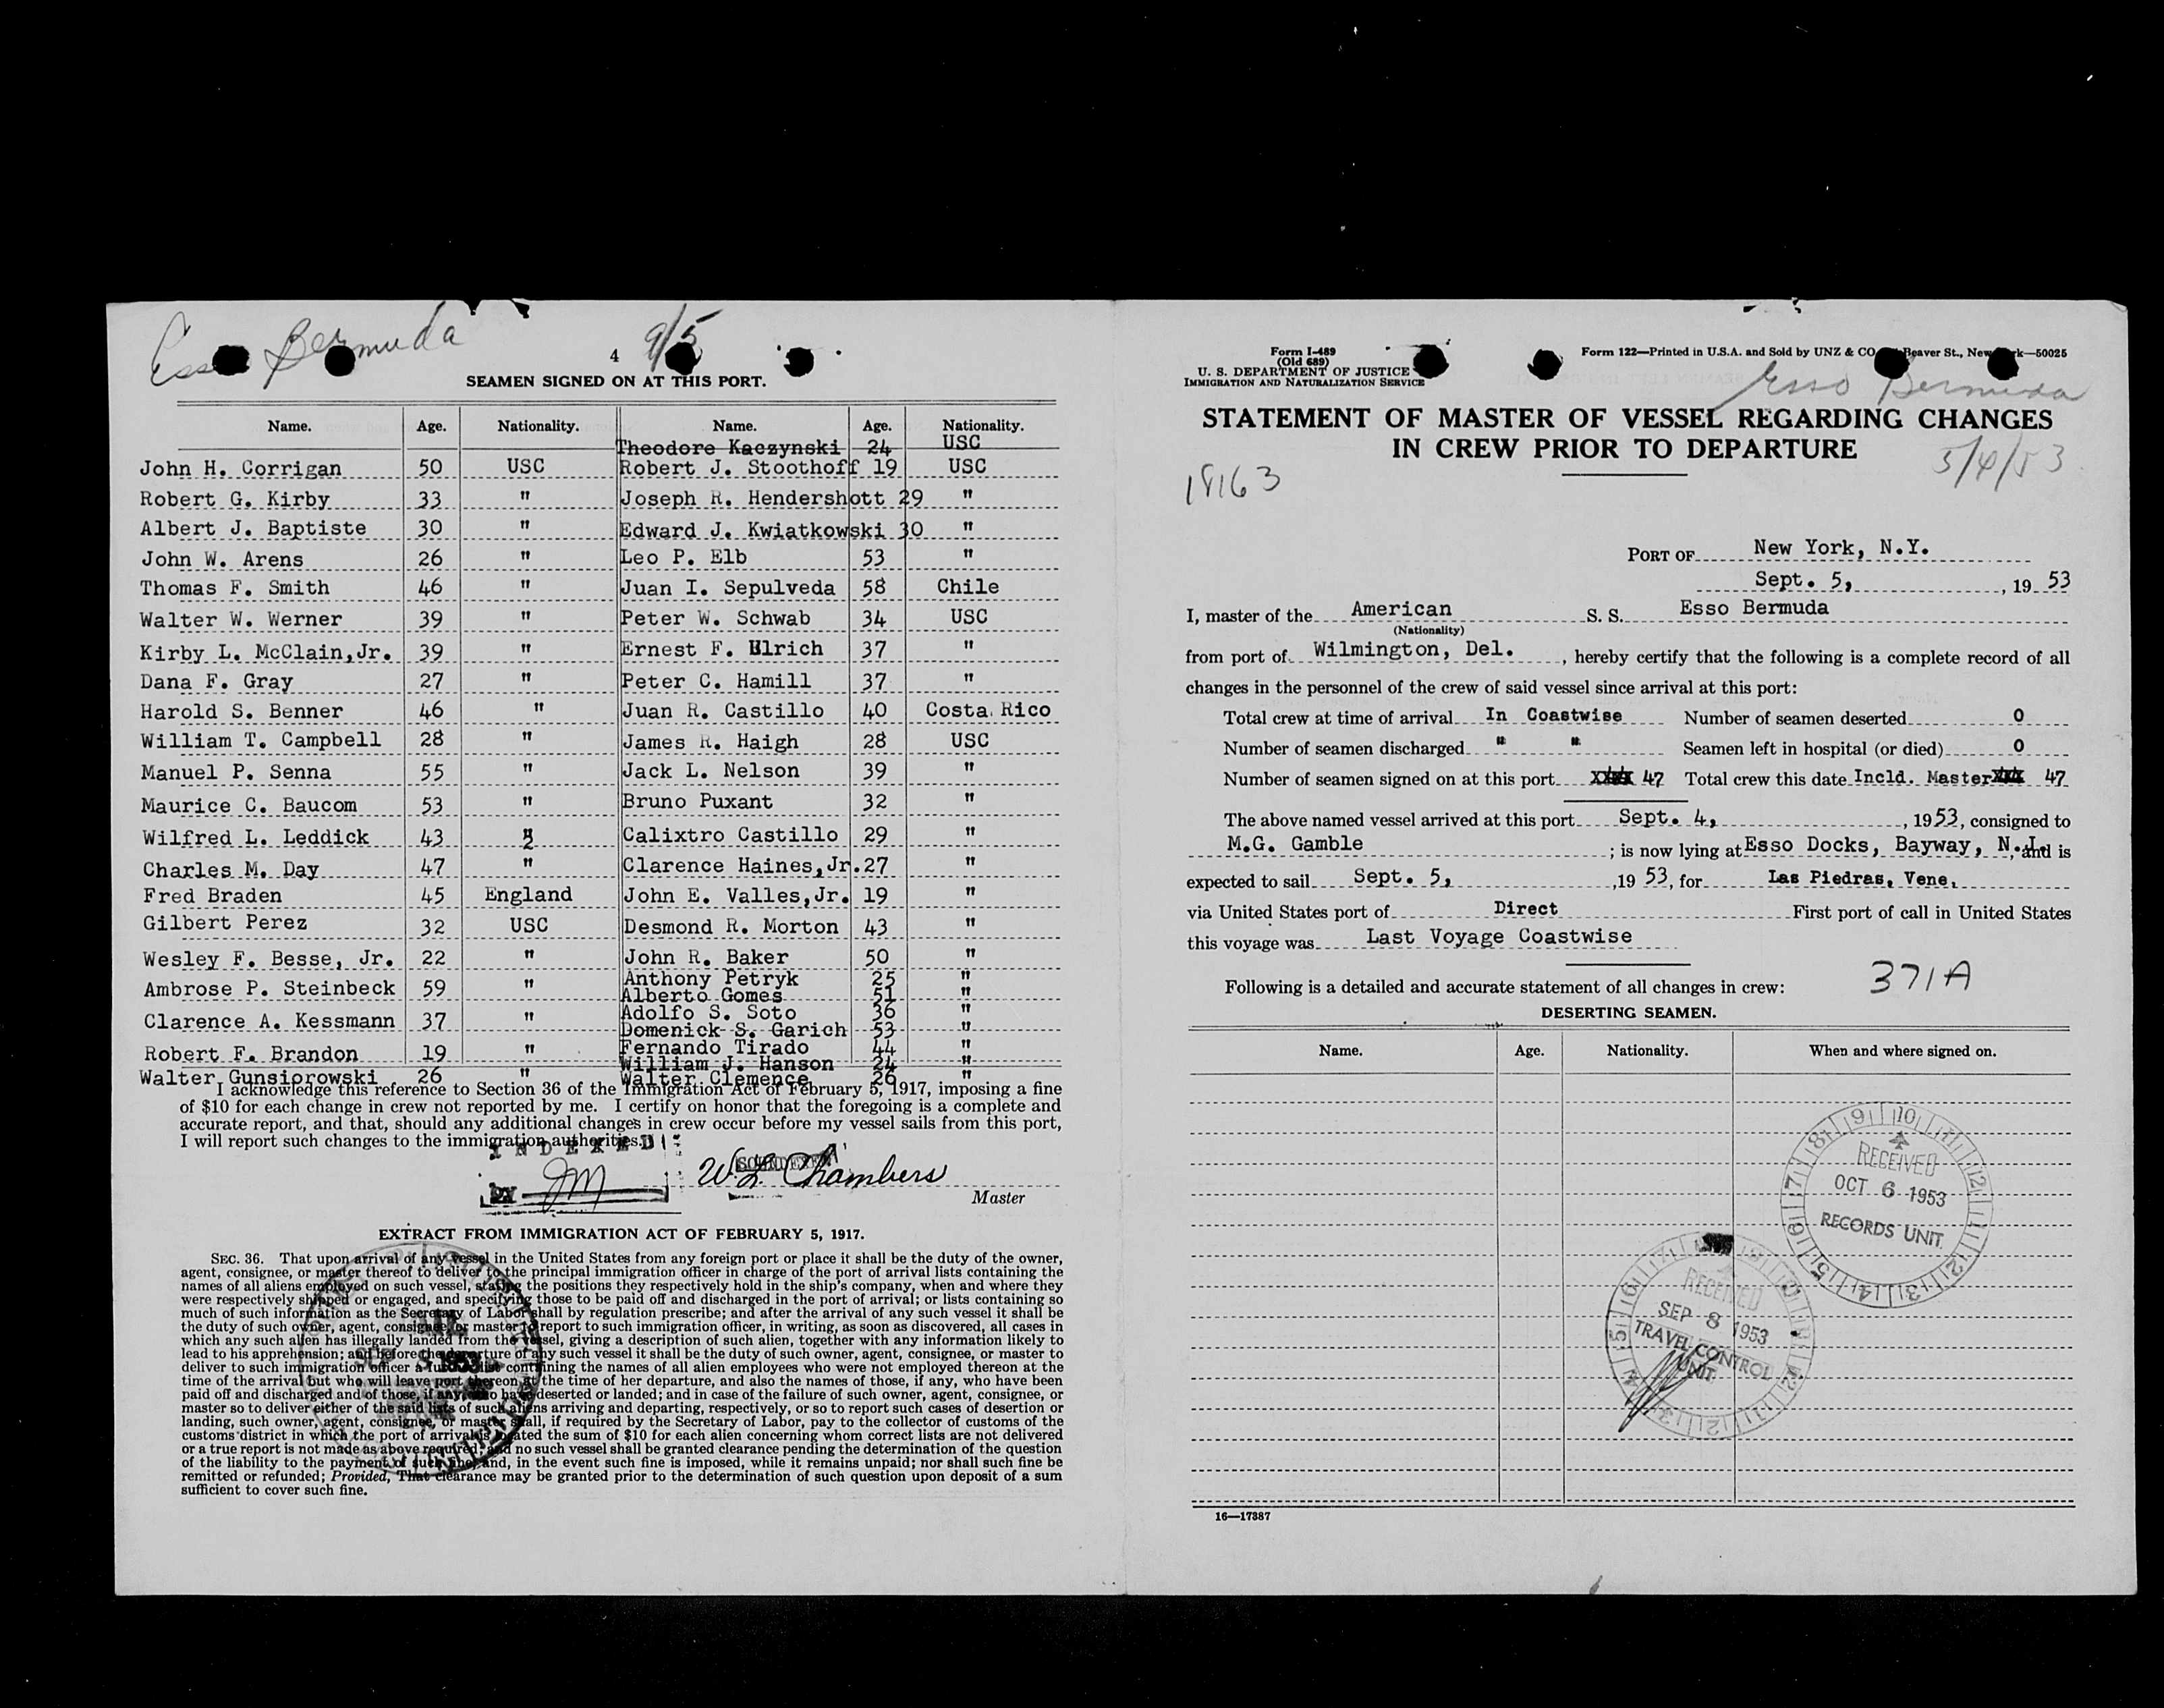 Esso Bermuda 9/5
4
SEAMEN SIGNED ON AT THIS PORT.
Name. Age. Nationality. Name. Age. Nationality.
Theodore Kaczynski 24 USC
John H. Corrigan 50 USC Robert J. Stoothoff 19 USC
Robert G. Kirby 33 " Joseph R. Hendershott 29 "
Albert J. Baptiste 30 " Edward J. Kwiatkowski 30 "
John W. Arens 26 " Leo P. Elb 53 "
Thomas F. Smith 46 " Juan I. Sepulveda 58 Chile
Walter W. Werner 39 " Peter W. Schwab 34 USC
Kirby L. McClain,Jr. 39 " Ernest F. Ulrich 37 "
Dana F. Gray 27 " Peter C. Hamill 37 "
Harold S. Benner 46 " Juan R. Castillo 40 Costa Rico
William T. Campbell 28 " James R. Haigh 28 USC
Manuel P. Senna 55 " Jack L. Nelson 39 "
Maurice C. Baucom 53 " Bruno Puxant 32 "
Wilfred L. Leddick 43 " Calixtro Castillo 29 "
Charles M. Day 47 " Clarence Haines,Jr. 27 "
Fred Braden 45 England John E. Valles,Jr. 19 "
Gilbert Perez 32 USC Desmond R. Morton 43 "
Wesley F. Besse, Jr. 22 " John R. Baker 50 "
Anthony Petryk 25 "
Ambrose P. Steinbeck 59 " Alberto Gomes 51 "
Adolfo S. Soto 36 "
Clarence A. Kessmann 37 " Domenick S. Garich 53 "
Fernando Tirado 44 "
Robert F. Brandon 19 " William J. Hanson 24 "
Walter Gunsiorowski 26 " Walter Clemence 26 "
I acknowledge this reference to Section 36 of the Immigration Act of February 5, 1917, imposing a fine
of $10 for each change in crew not reported by me. I certify on honor that the foregoing is a complete and
accurate report, and that, should any additional changes in crew occur before my vessel sails from this port,
I will report such changes to the immigration authorities.
INDEXED
BY JM
SOUNDEXED
W.L. Chambers
Master
EXTRACT FROM IMMIGRATION ACT OF FEBRUARY 5, 1917.
SEC. 36. That upon arrival of any vessel in the United States from any foreign port or place it shall be the duty of the owner,
agent, consignee, or master thereof to deliver to the principal immigration officer in charge of the port of arrival lists containing the
names of all aliens employed on such vessel, stating the positions they respectively hold in the ship's company, when and where they
were respectively shipped or engaged, and specifying those to be paid off and discharged in the port of arrival; or lists containing so
much of such information as the Secretary of Labor shall by regulation prescribe; and after the arrival of any such vessel it shall be
the duty of such owner, agent, consignee, or master to report to such immigration officer, in writing, as soon as discovered, all cases in
which any such alien has illegally landed from the vessel, giving a description of such alien, together with any information likely to
lead to his apprehension; and before the departure of any such vessel it shall be the duty of such owner, agent, consignee, or master to
deliver to such immigration officer a further list containing the names of all alien employees who were not employed thereon at the
time of the arrival but who will leave port thereon at the time of her departure, and also the names of those, if any, who have been
paid off and discharged and of those, if any, who have deserted or landed; and in case of the failure of such owner, agent, consignee, or
master so to deliver either of the said lists of such aliens arriving and departing, respectively, or so to report such cases of desertion or
landing, such owner, agent, consignee, or master shall, if required by the Secretary of Labor, pay to the collector of customs of the
customs district in which the port of arrival is located the sum of $10 for each alien concerning whom correct lists are not delivered
or a true report is not made as above required; and no such vessel shall be granted clearance pending the determination of the question
of the liability to the payment of such fine, and, in the event such fine is imposed, while it remains unpaid; nor shall such fine be
remitted or refunded; Provided, That clearance may be granted prior to the determination of such question upon deposit of a sum
sufficient to cover such fine.
SEP 8 1953
Form I-489
(Old 689)
U. S. DEPARTMENT OF JUSTICE
IMMIGRATION AND NATURALIZATION SERVICE
Form 122—Printed in U.S.A. and Sold by UNZ & CO. Beaver St., New York—50025
Esso Bermuda
STATEMENT OF MASTER OF VESSEL REGARDING CHANGES
IN CREW PRIOR TO DEPARTURE
5/4/53
18163
PORT OF New York, N.Y.
Sept. 5, , 19 53
I, master of the American S. S. Esso Bermuda
(Nationality)
from port of Wilmington, Del. , hereby certify that the following is a complete record of all
changes in the personnel of the crew of said vessel since arrival at this port:
Total crew at time of arrival In Coastwise Number of seamen deserted 0
Number of seamen discharged " " Seamen left in hospital (or died) 0
Number of seamen signed on at this port 47 Total crew this date Incld. Master 47
The above named vessel arrived at this port Sept. 4, , 1953, consigned to
M.G. Gamble ; is now lying at Esso Docks, Bayway, N.J. and is
expected to sail Sept. 5, ,19 53, for Las Piedras, Vene.
via United States port of Direct First port of call in United States
this voyage was Last Voyage Coastwise
371A
Following is a detailed and accurate statement of all changes in crew:
DESERTING SEAMEN.
Name. Age. Nationality. When and where signed on.
RECEIVED
OCT 6 1953
RECORDS UNIT
RECEIVED
SEP 8 1953
TRAVEL CONTROL
UNIT
16—17387